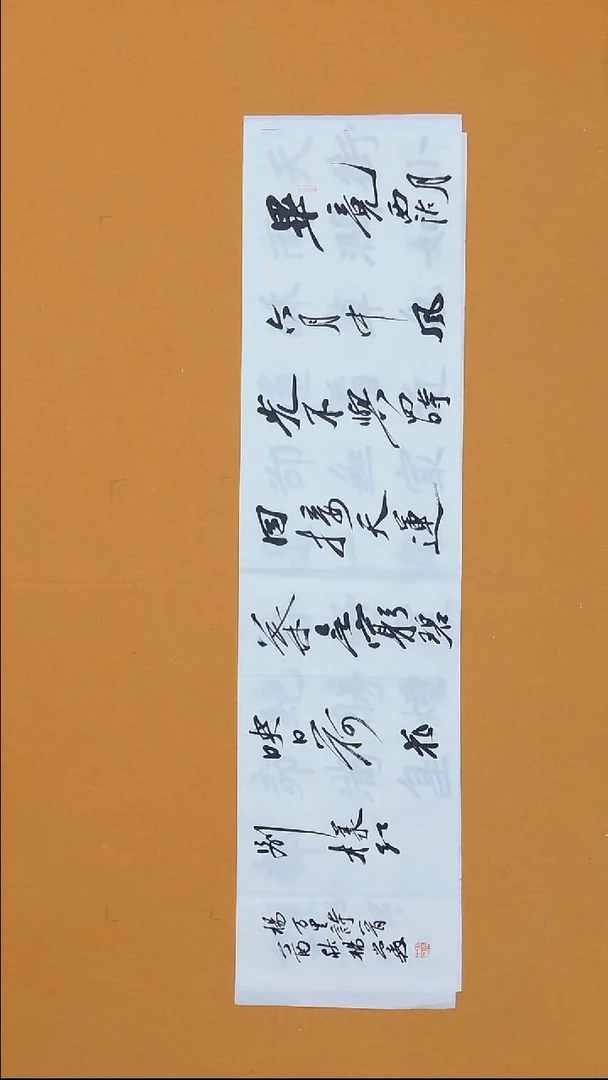 畢竟西湖
六月中風
光不與四時
同接天蓮
葉無窮碧
映日荷花
別樣紅
楊万里詩一首